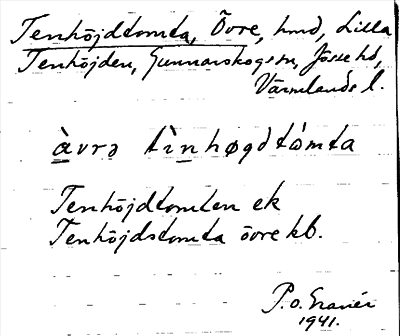 Tenhöjdtomta, Övre, hmd, Lilla
Tenhöjden, Gunnarskogs sn, Jösse hd,
Värmlands l.
àvrə tìnhøgdtómta
Tenhöjdtomten ek
Tenhöjdstomta övre kb.
P.O. Granér
1941.